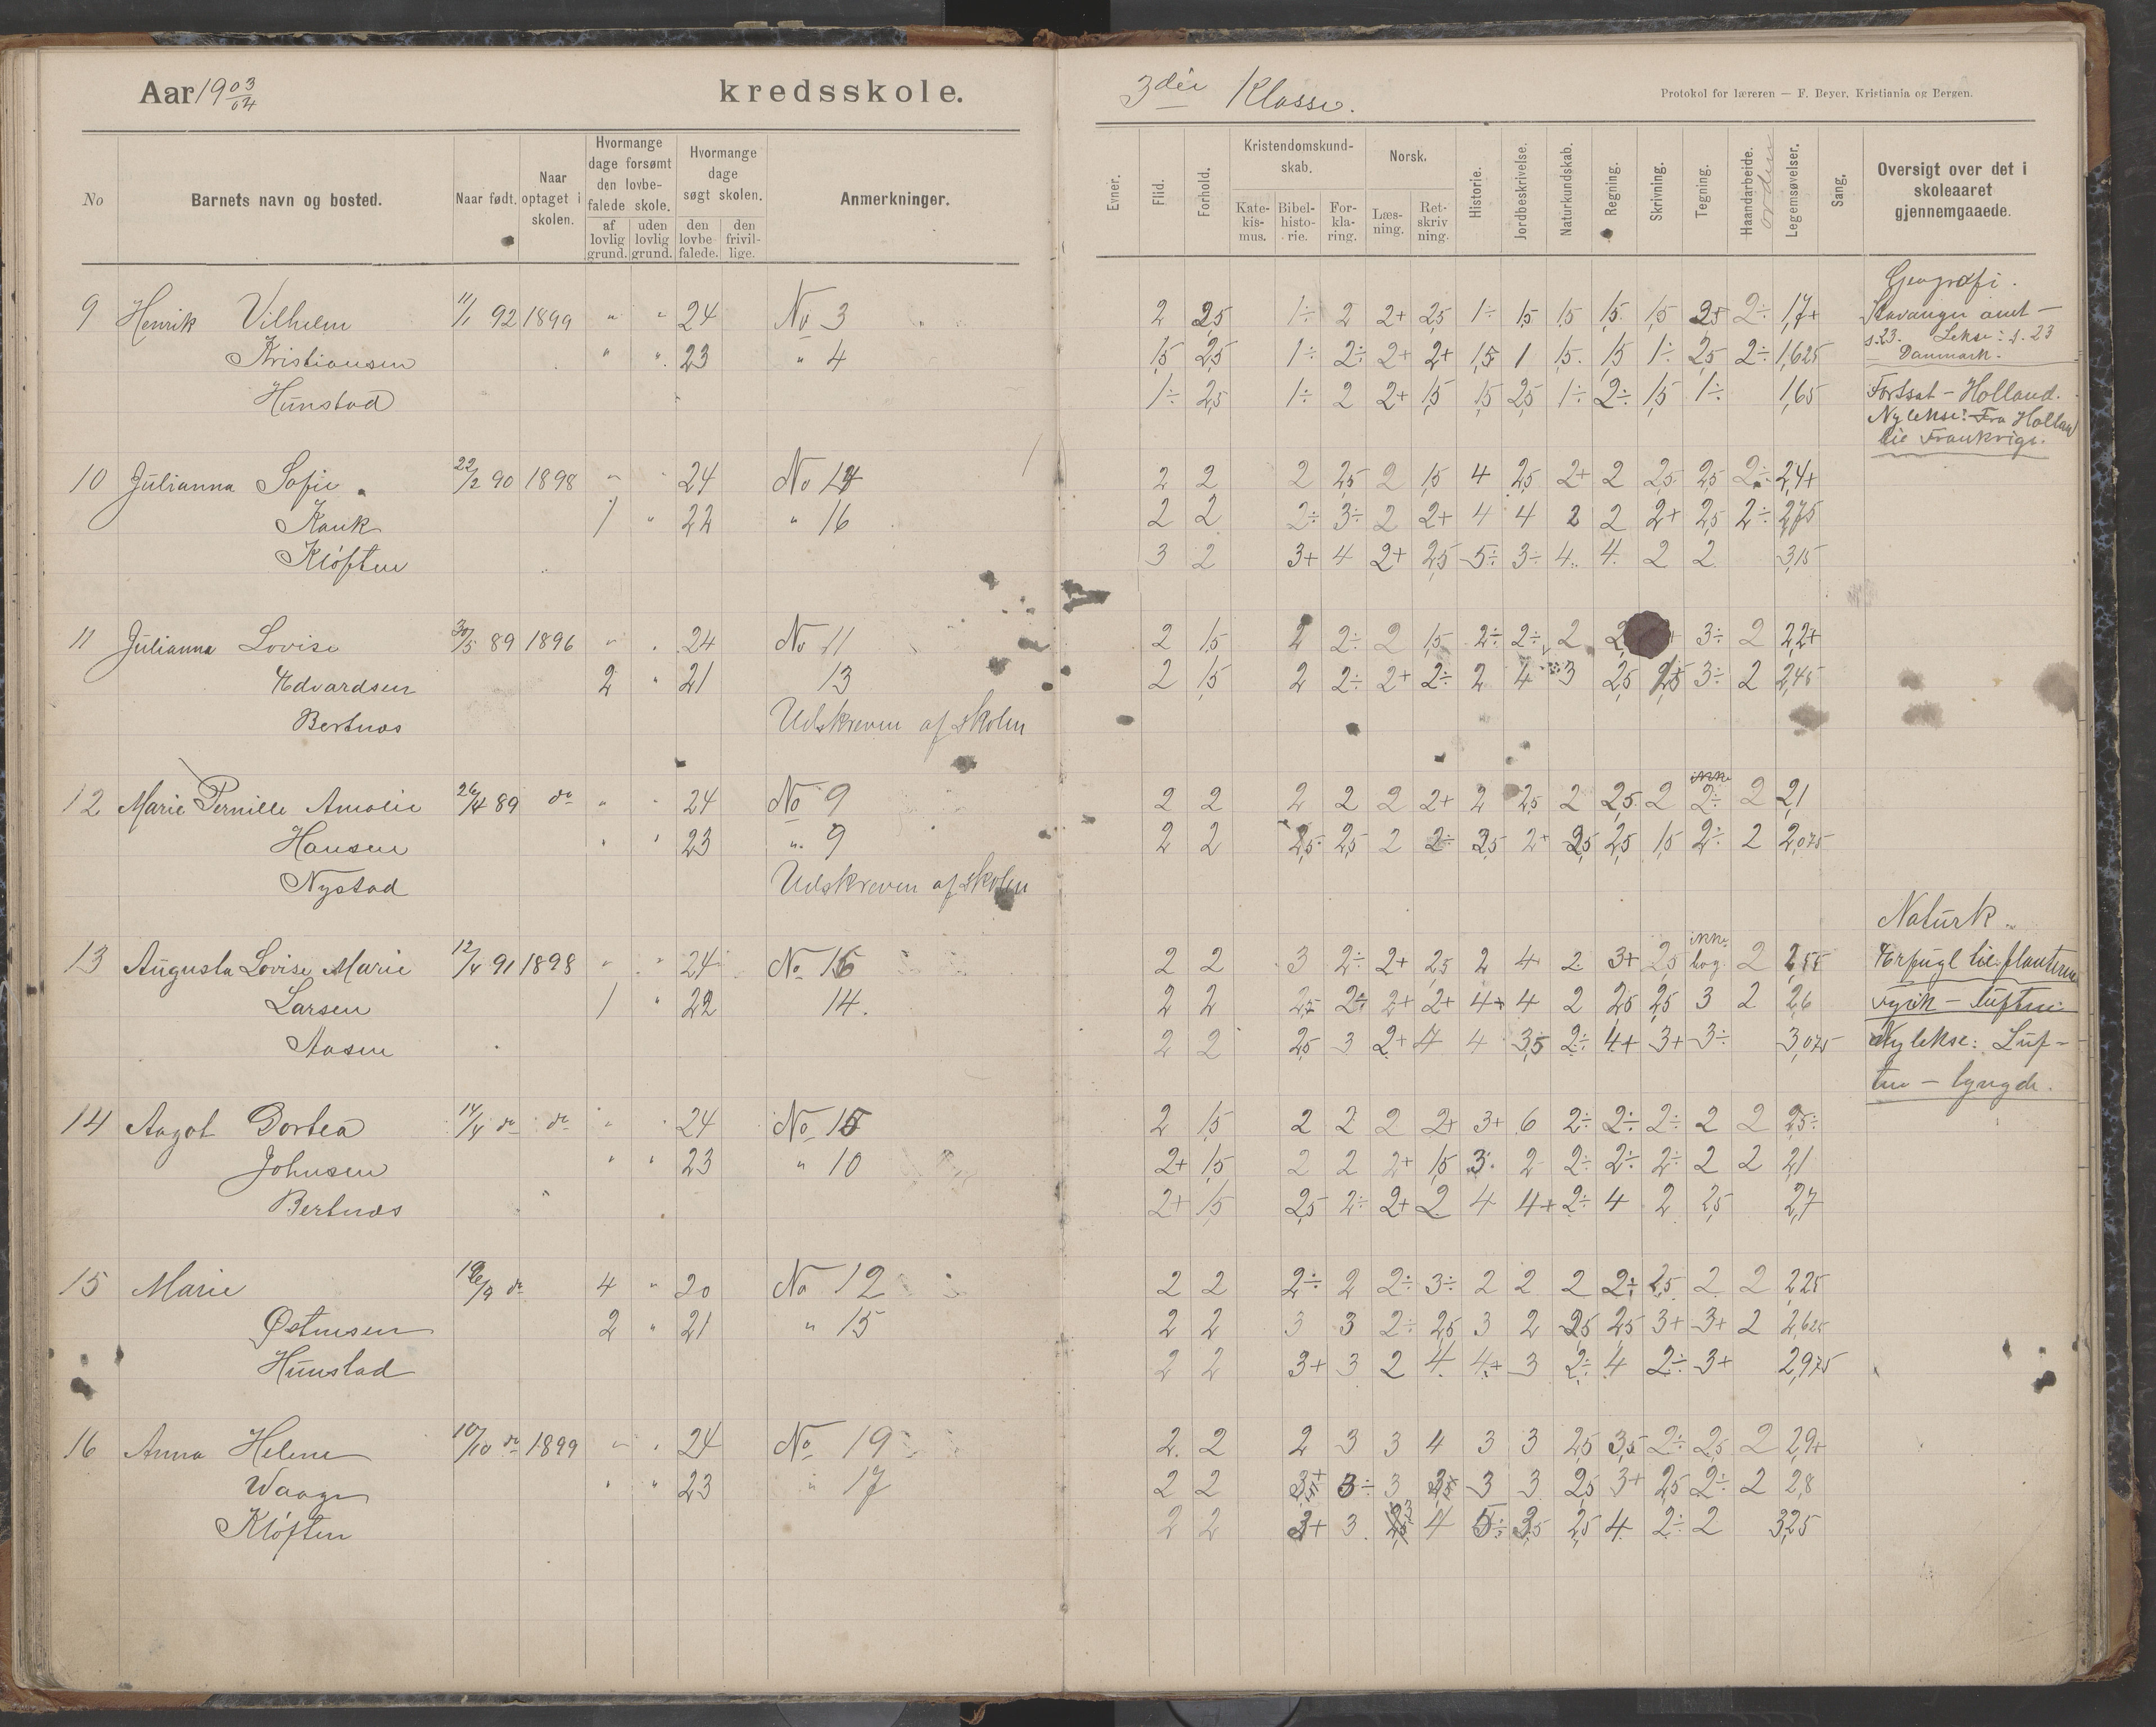 Aar 1903/04 kredsskole. 3die Klasse.
Protokol for læreren — F. Beyer, Kristiania og Bergen.
No | Barnets navn og bosted. | Naar født. | Naar optaget i skolen. | Hvormange dage forsømt den lovbefalede skole. | af lovlig grund. | uden lovlig grund. | Hvormange dage søgt skolen. | den lovbefalede. | den frivillige. | Anmerkninger. | Evner. | Flid. | Forhold. | Kristendomskundskab. | Katekismus. | Bibelhistorie. | Forklaring. | Norsk. | Læsning. | Retskrivning. | Historie. | Jordbeskrivelse. | Naturkundskab. | Regning. | Skrivning. | Tegning. | Haandarbeide. | orden | Legemsøvelser. | Sang. | Oversigt over det i skoleaaret gjennemgaaede.
Geografi.
9 Henrik Vilhelm 11/1 92 1899 " " 24 No 3 2 2,5 1÷ 2 2+ 2,5 1÷ 1,5 1,5 1,5 1,5 2,5 2÷ 1,7+ Stavanger amt –
Kristiansen " " 23 " 4 1,5 2,5 1÷ 2÷ 2+ 2+ 1,5 1 1,5 1,5 1÷ 2,5 2÷ 1,625 s. 23. Lekse: s. 23
Danmark.
Hunstad 1÷ 2,5 1÷ 2 2+ 1,5 1,5 2,5 1÷ 2÷ 1,5 1÷ 1,65 Fortsat – Holland.
Ny lekse: Fra Holland
til Frankrige.
10 Julianna Sofie 22/2 90 1898 " " 24 No 2 2 2 2,5 2 1,5 4 2,5 2+ 2 2,5 2,5 2÷ 2,4+
Kank 1 " 22 " 16 2 2 2÷ 3÷ 2 2+ 4 4 2 2 2+ 2,5 2÷ 2,75
Kløften 3 2 3+ 4 2+ 2,5 5÷ 3÷ 4 4 2 2 3,15
11 Julianna Lovise 30/5 89 1896 " " 24 No 11 2 1,5 2 2÷ 2 1,5 2÷ 2÷ 2 3÷ 2 2,2+
Edvardsen 2 " 21 13 2 1,5 2 2÷ 2+ 2÷ 2 4 3 2,5 2,5 3÷ 2 2,45
Bertnæs Udskreven af skolen
12 Marie Pernille Amalie 26/4 89 do " " 24 No 9 2 2 2 2 2 2+ 2 2,5 2 2,5 2 2÷ 2 2,1
Hansen " " 23 " 9 2 2 2,5 2,5 2 2÷ 2,5 2+ 2,5 2,5 1,5 2÷ 2 2,075
Nystad Udskreven af skolen
Naturk.
13 Augusta Lovise Marie 12/4 91 1898 " " 24 No 16 2 2 3 2÷ 2+ 2,5 2 4 2 3+ 2,5 ikke bog 2 2,55 Erfugl til planterne
Larsen 1 " 22 14. 2 2 2,5 2÷ 2+ 2+ 4+ 4 2 2,5 2,5 3 2 2,6 Fysik – luften
Aasen 2 2 2,5 3 2+ 4 4 3,5 2÷ 4+ 3+ 3÷ 3,075 Ny lekse: Luf-
ten – tyngde.
14 Aagot Dortea 14/4 do do " " 24 No 15 2 1,5 2 2 2 2+ 3+ 6 2÷ 2÷ 2÷ 2 2 2,5÷
Johnsen " " 23 " 10 2+ 1,5 2 2 2+ 1,5 3 2 2÷ 2÷ 2÷ 2 2 2,1
Bertnæs 2+ 1,5 2,5 2÷ 2+ 2 4 4+ 2÷ 4 2 2,5 2,7
15 Marie do 4 " 20 No 12 2 2 2÷ 2 2÷ 3÷ 2 2 2 2÷ 2,5 2 2 2,25
Østensen 2 " 21 " 15 2 2 3 3 2÷ 2,5 3 2 2,5 2,5 3+ 3+ 2 2,625
Hunstad 2 2 3+ 3 2 4 4+ 3 2÷ 4 2÷ 3+ 2,975
16 Anna Helene 10/10 do 1899 " " 24 No 19 2 2 2 3 3 4 3 3 2,5 3,5 2÷ 2,5 2 2,9+
Waage " " 23 " 17 2 2 3÷ 3 3 3 2,5 3+ 2,5 2÷ 2 2,8
Kløften 2 2 3+ 3 4 5÷ 3,5 2,5 4 2÷ 2 3,25